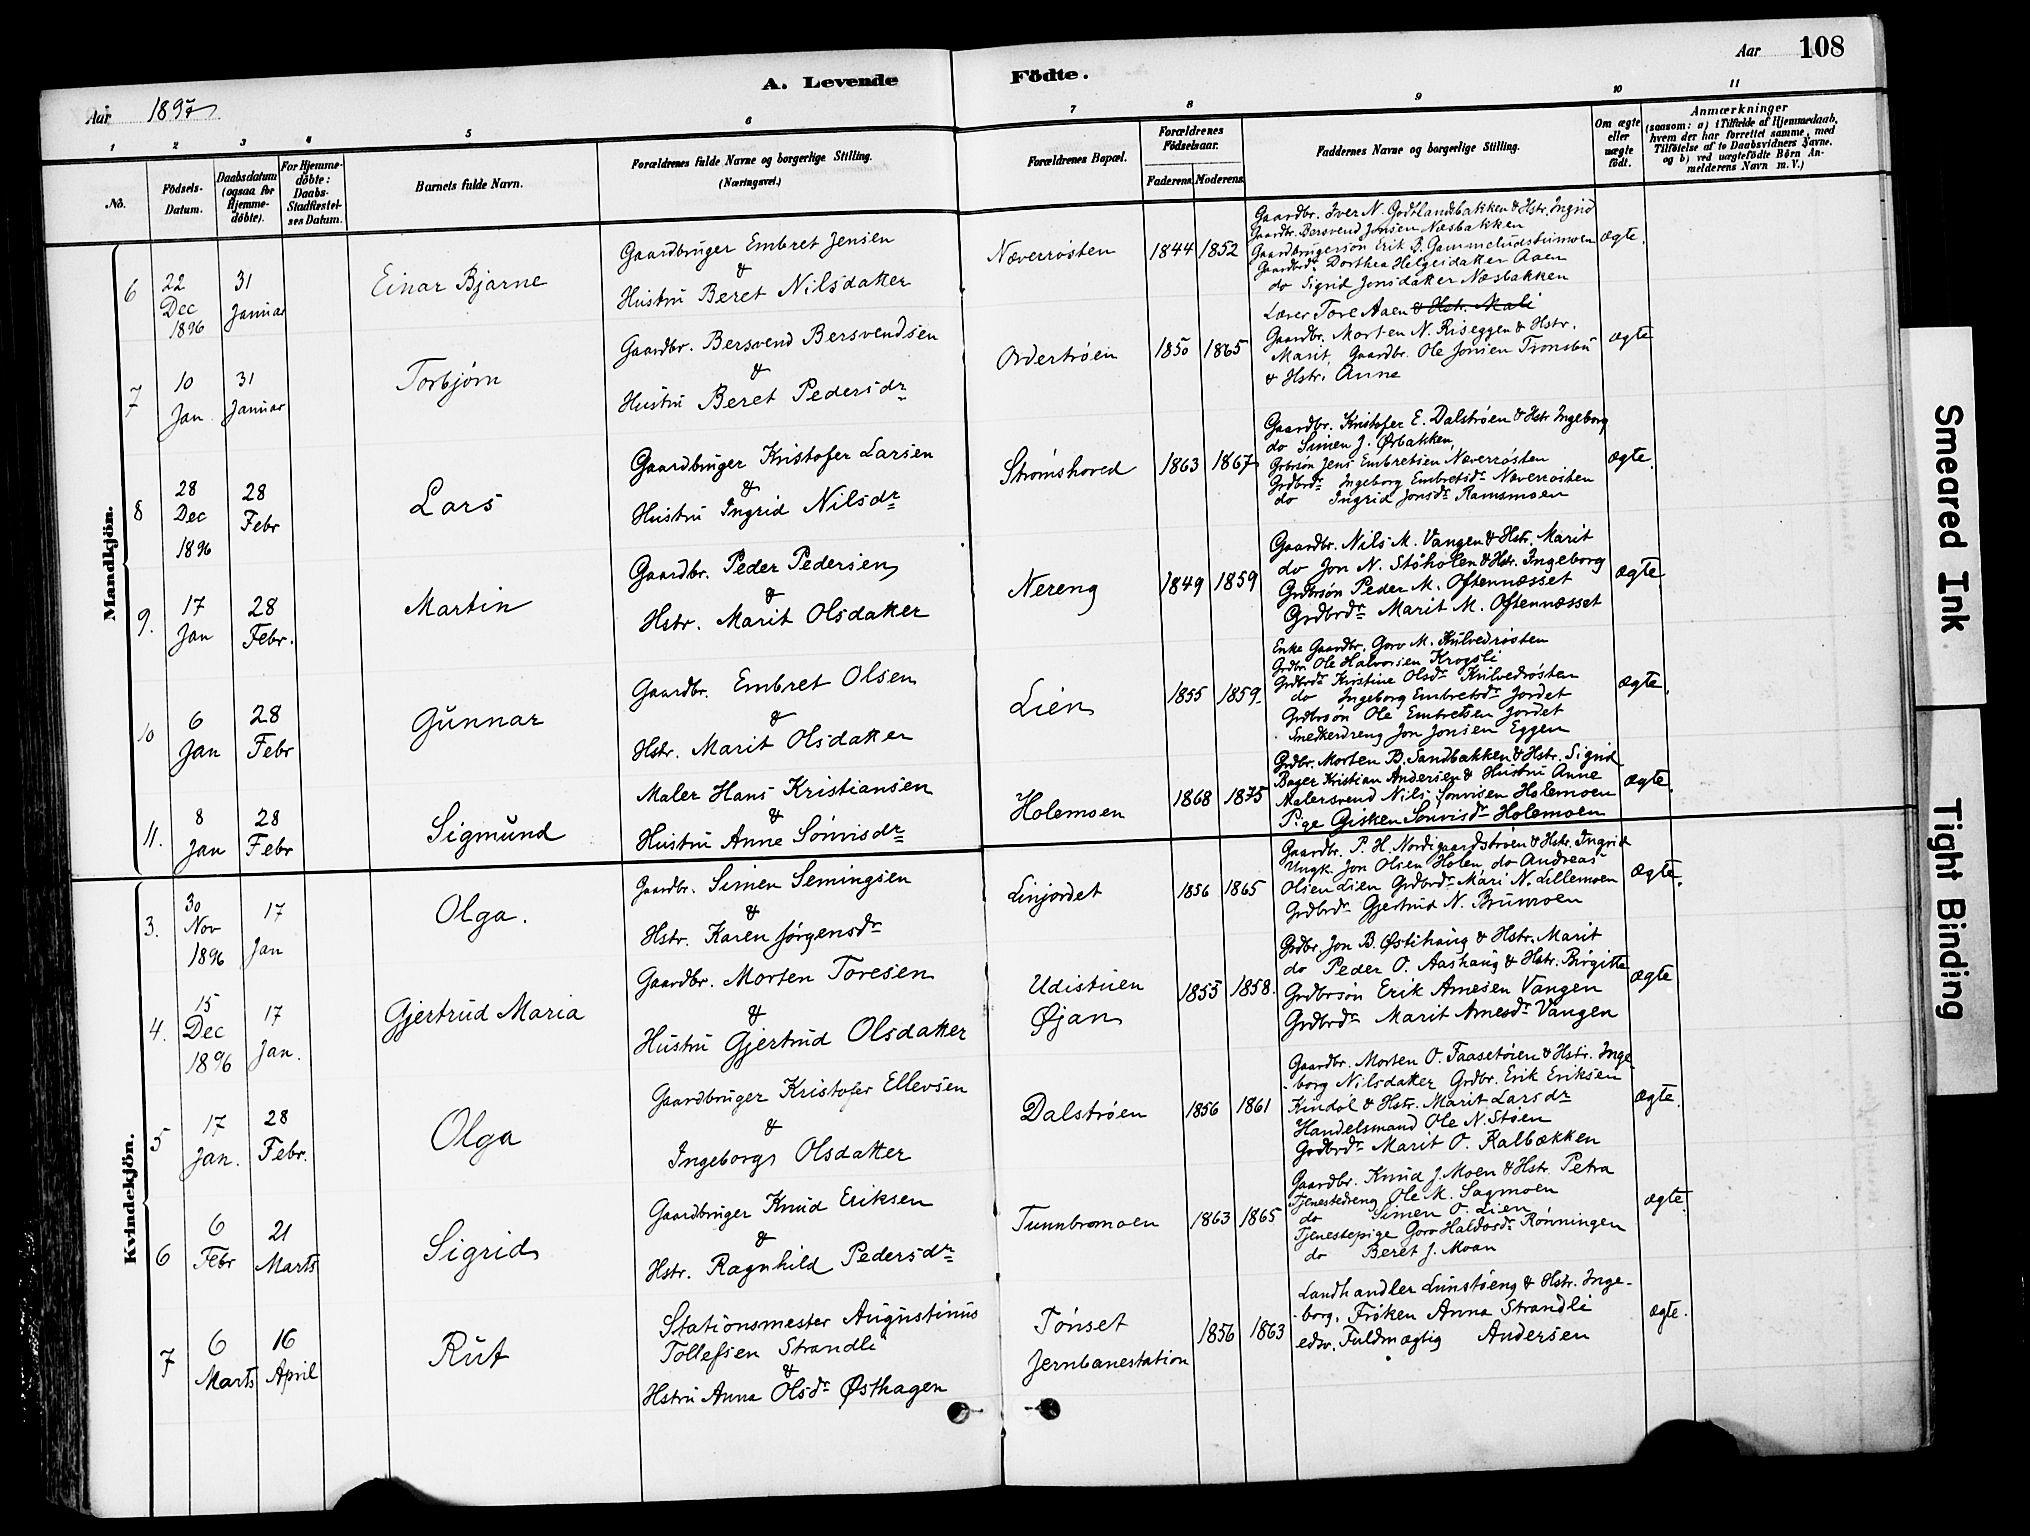 A. Levende Födte.
Aar 1897
Aar 108
1 2 3 4 5 6 7 8 9 10 11
No.
Födsels-Datum.
Daabsdatum (ogsaa for Hjemme-döbte).
For Hjemme-döbte: Daabs-Stadfæstel-ses Datum.
Barnets fulde Navn.
Forældrenes fulde Navne og borgerlige Stilling.
(Næringsvei.)
Forældrenes Bopæl.
Forældrenes Födselsaar.
Faderens. Moderens.
Faddernes Navne og borgerlige Stilling.
Om ægte eller uægte födt.
Anmærkninger
(saasom: a) i Tilfælde af Hjemmedaab, hvem der har forrettet samme, med Tilföielse af to Daabsvidners Navne, og b) ved uægtefödte Börn An-melderens Navn m.V.)
Mandkjön.
6
22 Dec 1896
31 Januar
Einar Bjarne
Gaardbruger Embret Jensen
&
Hustru Beret Nilsdatter
Næverrösten
1844 1852
Gaardbr. Iver N. Godtlandsbakken & Hstr. Ingrid
Gaardbr. Bersvend Jonsen Næsbakken
Gaardbrugersön Erik B. Gammeludstumoen
Gaardbrdr. Dorthea Helgesdatter Aaen
do Sigrid Jonsdatter Næsbakken
ægte.
7
10 Jan.
31 Januar
Torbjörn
Gaardbr. Bersvend Bersvendsen
&
Hustru Beret Pedersdr.
Ordertröen
1850 1865
Lærer Tore Aaen & Hstr. Mali
Gaardbr. Morten N. Riseggen & Hstr.
Marit, Gaardbr. Ole Jonsen Tronsbu
& Hstr. Anne
ægte
8
28 Dec 1896
28 Febr
Lars
Gaardbruger Kristofer Larsen
&
Hustru Ingrid Nilsdr.
Strömshoved
1863 1867
Gaardbr. Kristofer E. Dalströen & Hstr Ingeborg
do Simen J. Örbakken,
Grbrsön Jens Embretsen Næverrösten
Grdbrdr. Ingeborg Embretsdr. Næverrösten
do Ingrid Jonsdr. Ramsmoen
ægte.
9.
17 Jan
28 Febr.
Martin
Gaardbr. Peder Pedersen
&
Hstr. Marit Olsdatter
Nereng
1849 1859
Gaardbr. Nils M. Vangen & Hstr. Marit
do Jon N. Stöholen & Hstr. Ingeborg
Grdbrsön Peder M. Oftennæsset
Grdbrdr. Marit M. Oftennæsset
ægte.
10
6 Jan
28 Febr
Gunnar
Gaardbr. Embret Olsen
&
Hstr. Marit Olsdatter
Lien
1855 1859
Enke Gaardbr. Goro M. Kulvedrösten
Grdbr. Ole Halvorsen Krogsli
Grdbrdr. Kristine Olsdr. Kulvedrösten
do Ingeborg Embretsdr. Jordet
Grdbrsön Ole Embretsen Jordet
Snedkerdreng Jon Jonsen Eggen
ægte.
11.
8 Jan
28 Febr
Sigmund
Maler Hans Kristiansen
&
Hustru Anne Sönvisdr.
Holemoen
1868 1875
Grdbr. Morten B. Sandbakken & Hstr. Sigrid
Bager Kristian Andersen & Hustru Anne
Malersvend Nils Sönvisen Holemoen
Pige Gisken Sönvisdr. Holemoen
ægte.
Kvindekjön.
3.
30 Nov 1896
17 Jan
Olga.
Gaardbr. Simen Semingsen
&
Hstr. Karen Jörgensdr.
Linjordet
1856 1865
Gaardbr. P. H. Nordigaardströen & Hstr. Ingrid
Ungk. Jon Olsen Holen do Andreas
Olsen Lien Grdbrdr. Mari N. Lillemoen
Grdbrdr. Gjertrud N. Brumoen
ægte.
4.
15 Dec 1896
17 Jan.
Gjertrud Maria
Gaardbr. Morten Toresen
&
Hustru Gjertrud Olsdatter
Udistuen
Öjan
1855 1858.
Grdbr. Jon B. Östihaug & Hstr. Marit
do Peder O. Aashaug & Hstr. Birgitte
Grdbrsön Erik Arnesen Vangen
Grdbrdr. Marit Arnesdr. Vangen
ægte
5
17 Jan.
28 Febr.
Olga
Gaardbruger Kristofer Ellevsen
&
Ingeborg Olsdatter
Dalströen
1856 1861
Gaardbr. Morten O. Faasetöien & Hstr. Inge-
borg Nilsdatter Grdbr. Erik Eriksen
Kindöl & Hstr. Marit Larsdr
Handelsmand Ole N. Stöen
Grdbrdr. Marit O. Kalbækken
ægte.
6
6 Febr
21 Marts
Sigrid
Gaardbruger Knud Eriksen
&
Hstr. Ragnhild Pedersdr.
Tunnbromoen
1863 1865
Gaardbr. Knud J. Moen & Hstr. Petra
Tjenestedreng Ole M. Sagmoen
do Simen O. Lien
Tjenestepige Goro Haldosdr. Rönningen
do Beret J. Moan
ægte.
7
6 Marts
16 April
Rut
Stationsmester Augustinus
Tollefsen Strandli
&
Hstru Anna Olsdr. Östhagen
Tönset
Jernbanestation
1856 1863
Landhandler Lunstöeng & Hstr. Inge-
borg, Fröken Anna Strandli
edsv. Fuldmægtig Andersen
ægte.
Smeared Ink
Tight Binding